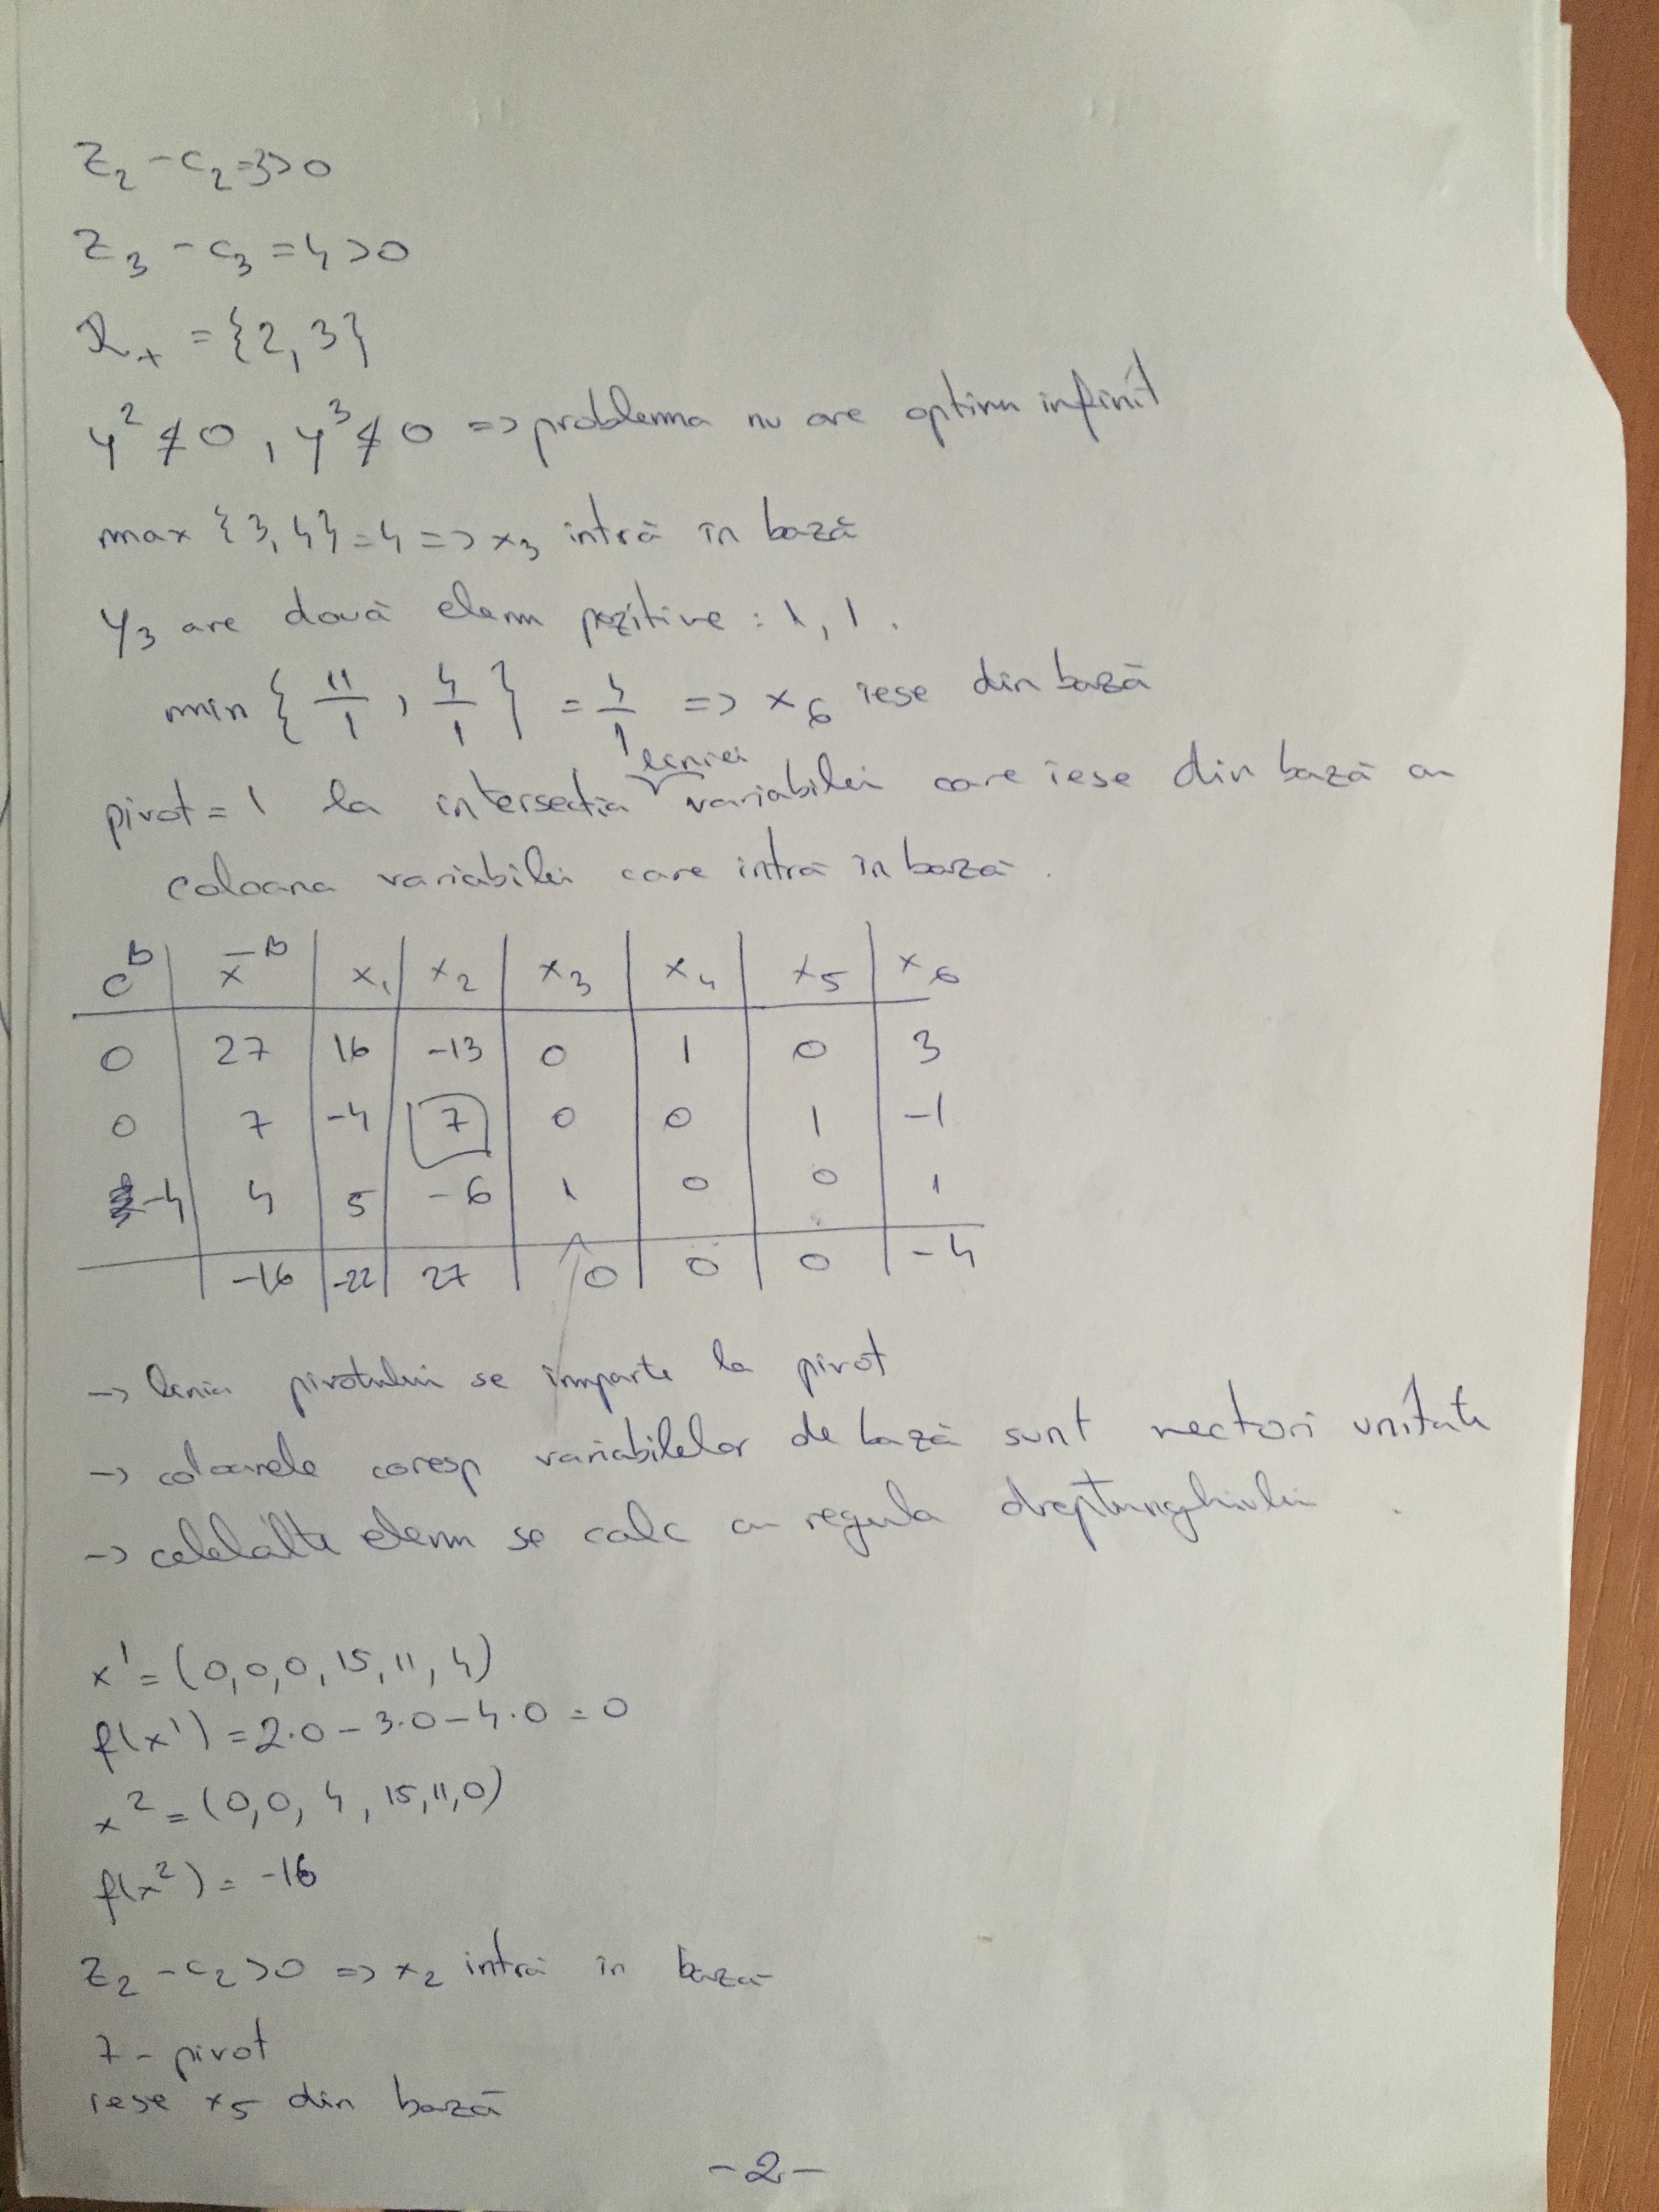 z₂ - c₂ = 3 > 0
z₃ - c₃ = 4 > 0
R₊ = {2, 3}
y² ≰ 0, y³ ≰ 0 => problema nu are optim infinit
max {3, 4} = 4 => x₃ intră în bază
y₃ are două elem pozitive : 1, 1.
min { 11/1, 4/1 } = 4/1 => x₆ iese din bază
liniei
pivot = 1 la intersectia variabilei care iese din bază cu
coloana variabilei care intră în bază.
c^B | x̄^B | x₁ | x₂ | x₃ | x₄ | x₅ | x₆
0 | 27 | 16 | -13 | 0 | 1 | 0 | 3
0 | 7 | -4 | 7 | 0 | 0 | 1 | -1
-4 | 4 | 5 | -6 | 1 | 0 | 0 | 1
| -16 | -22 | 27 | 0 | 0 | 0 | -4
-> linia pivotului se împarte la pivot
-> coloanele coresp variabilelor de bază sunt vectori unitate
-> celelalte elem se calc cu regula dreptunghiului
x¹ = (0, 0, 0, 15, 11, 4)
f(x¹) = 2·0 - 3·0 - 4·0 = 0
x² = (0, 0, 4, 15, 11, 0)
f(x²) = -16
z₂ - c₂ > 0 => x₂ intră în bază
7 - pivot
iese x₅ din bază
-2-